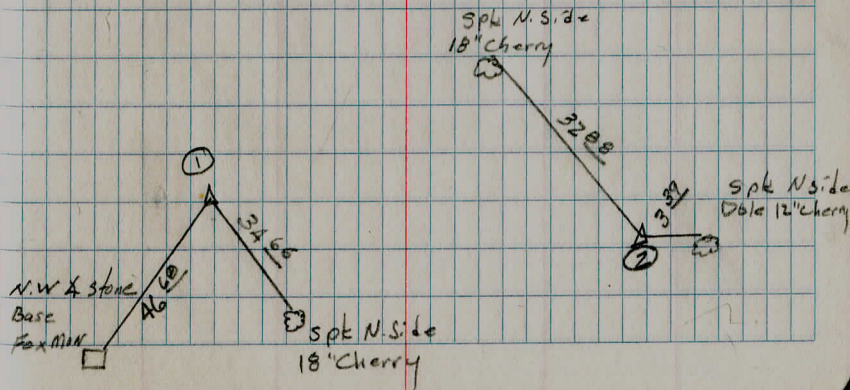 Spk N. Side
18" Cherry
3288
3 39
Spk N side
Dble 12" Cherry
2
1
34 66
46 60
N.W ∡ stone
Base
Fox Mon
Spk N. Side
18" Cherry